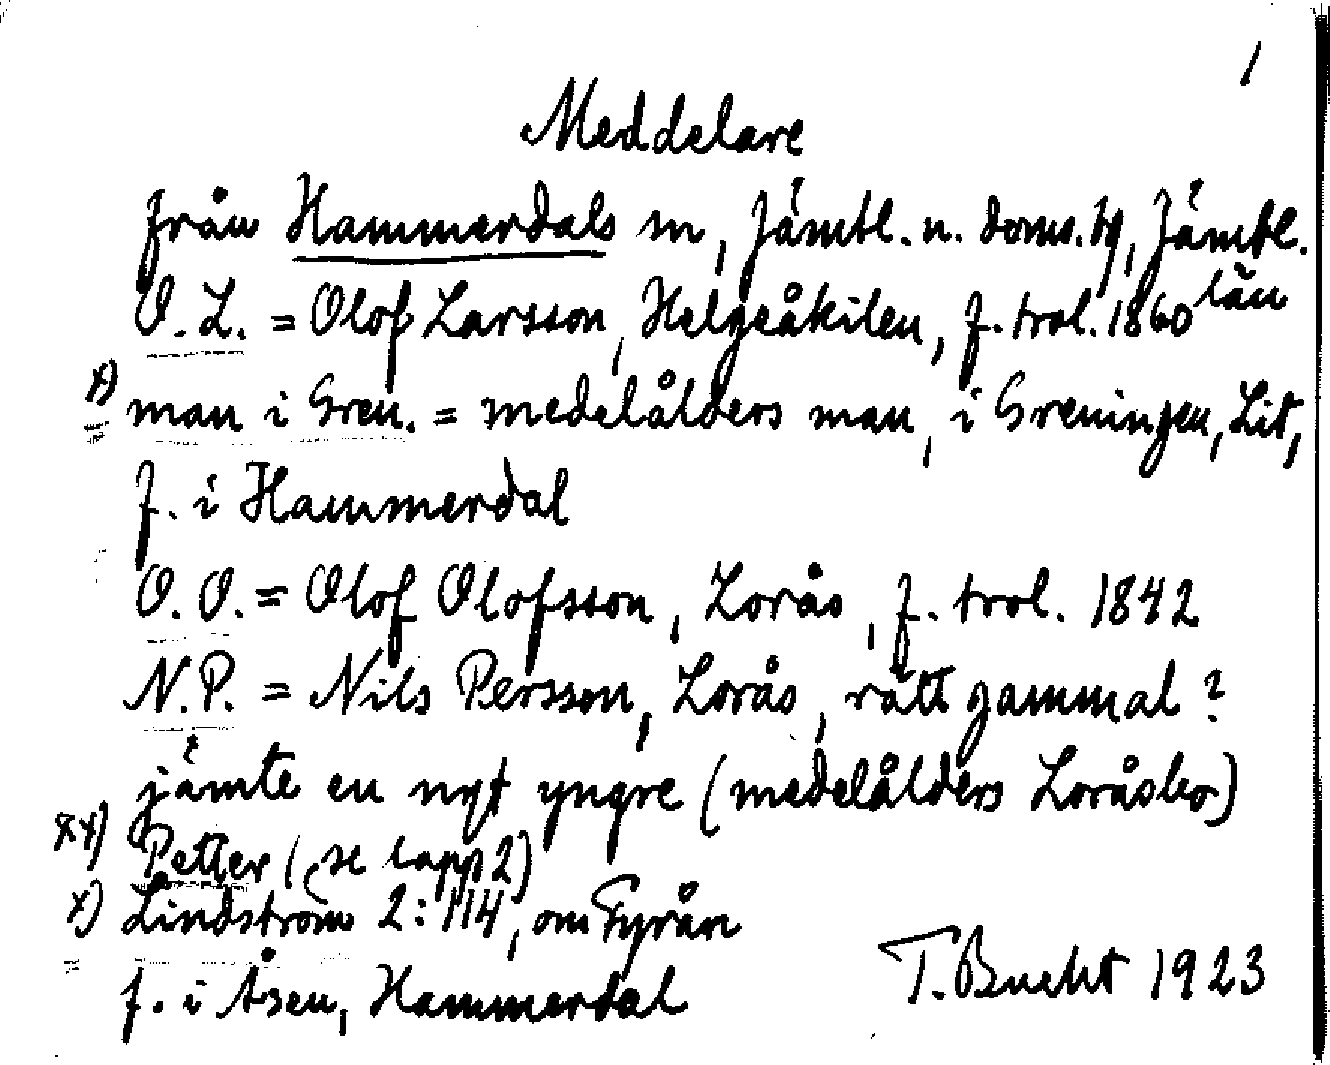 1
Meddelare
från Hammerdals sn, Jämtl. n. doms. tg, Jämtl. län
O.L. = Olof Larsson, Helgeåkilen, f. trol. 1860
x) man i Gren. = medelålders man, i Greningen, Lit,
f. i Hammerdal
O.O. = Olof Olofsson, Lorås, f. trol. 1842
N.P. = Nils Persson, Lorås, rätt gammal?
jämte en ngt yngre (medelålders Loråsbo)
xx) Petter (, se lapp 2)
x) Lindström 2:114, om Fyrån
f. i Åsen, Hammerdal
T. Bucht 1923